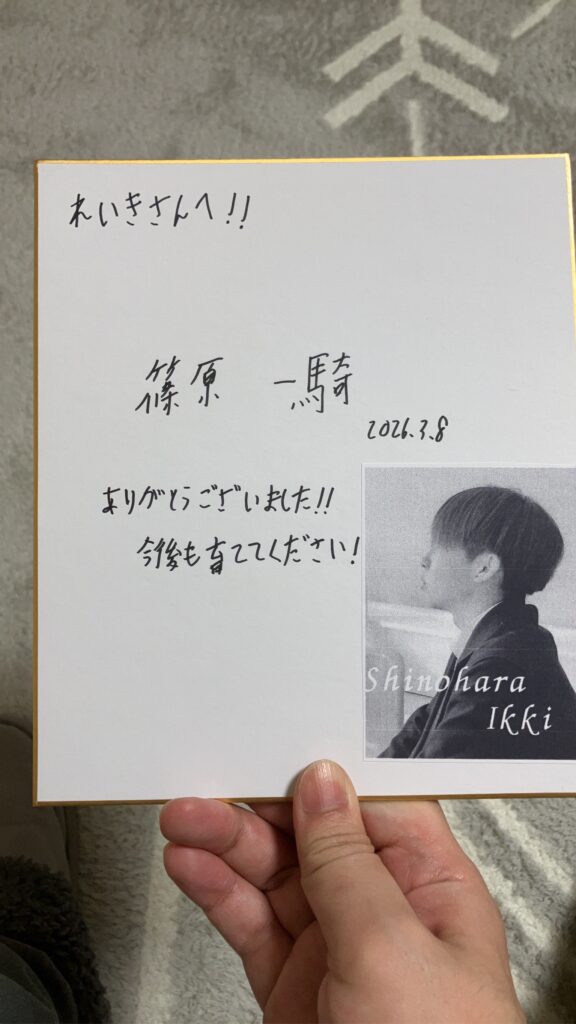 れいきさんへ!!
篠原 一騎
2026.3.8
ありがとうございました!!
今後も育ててください!
Shinohara
Ikki